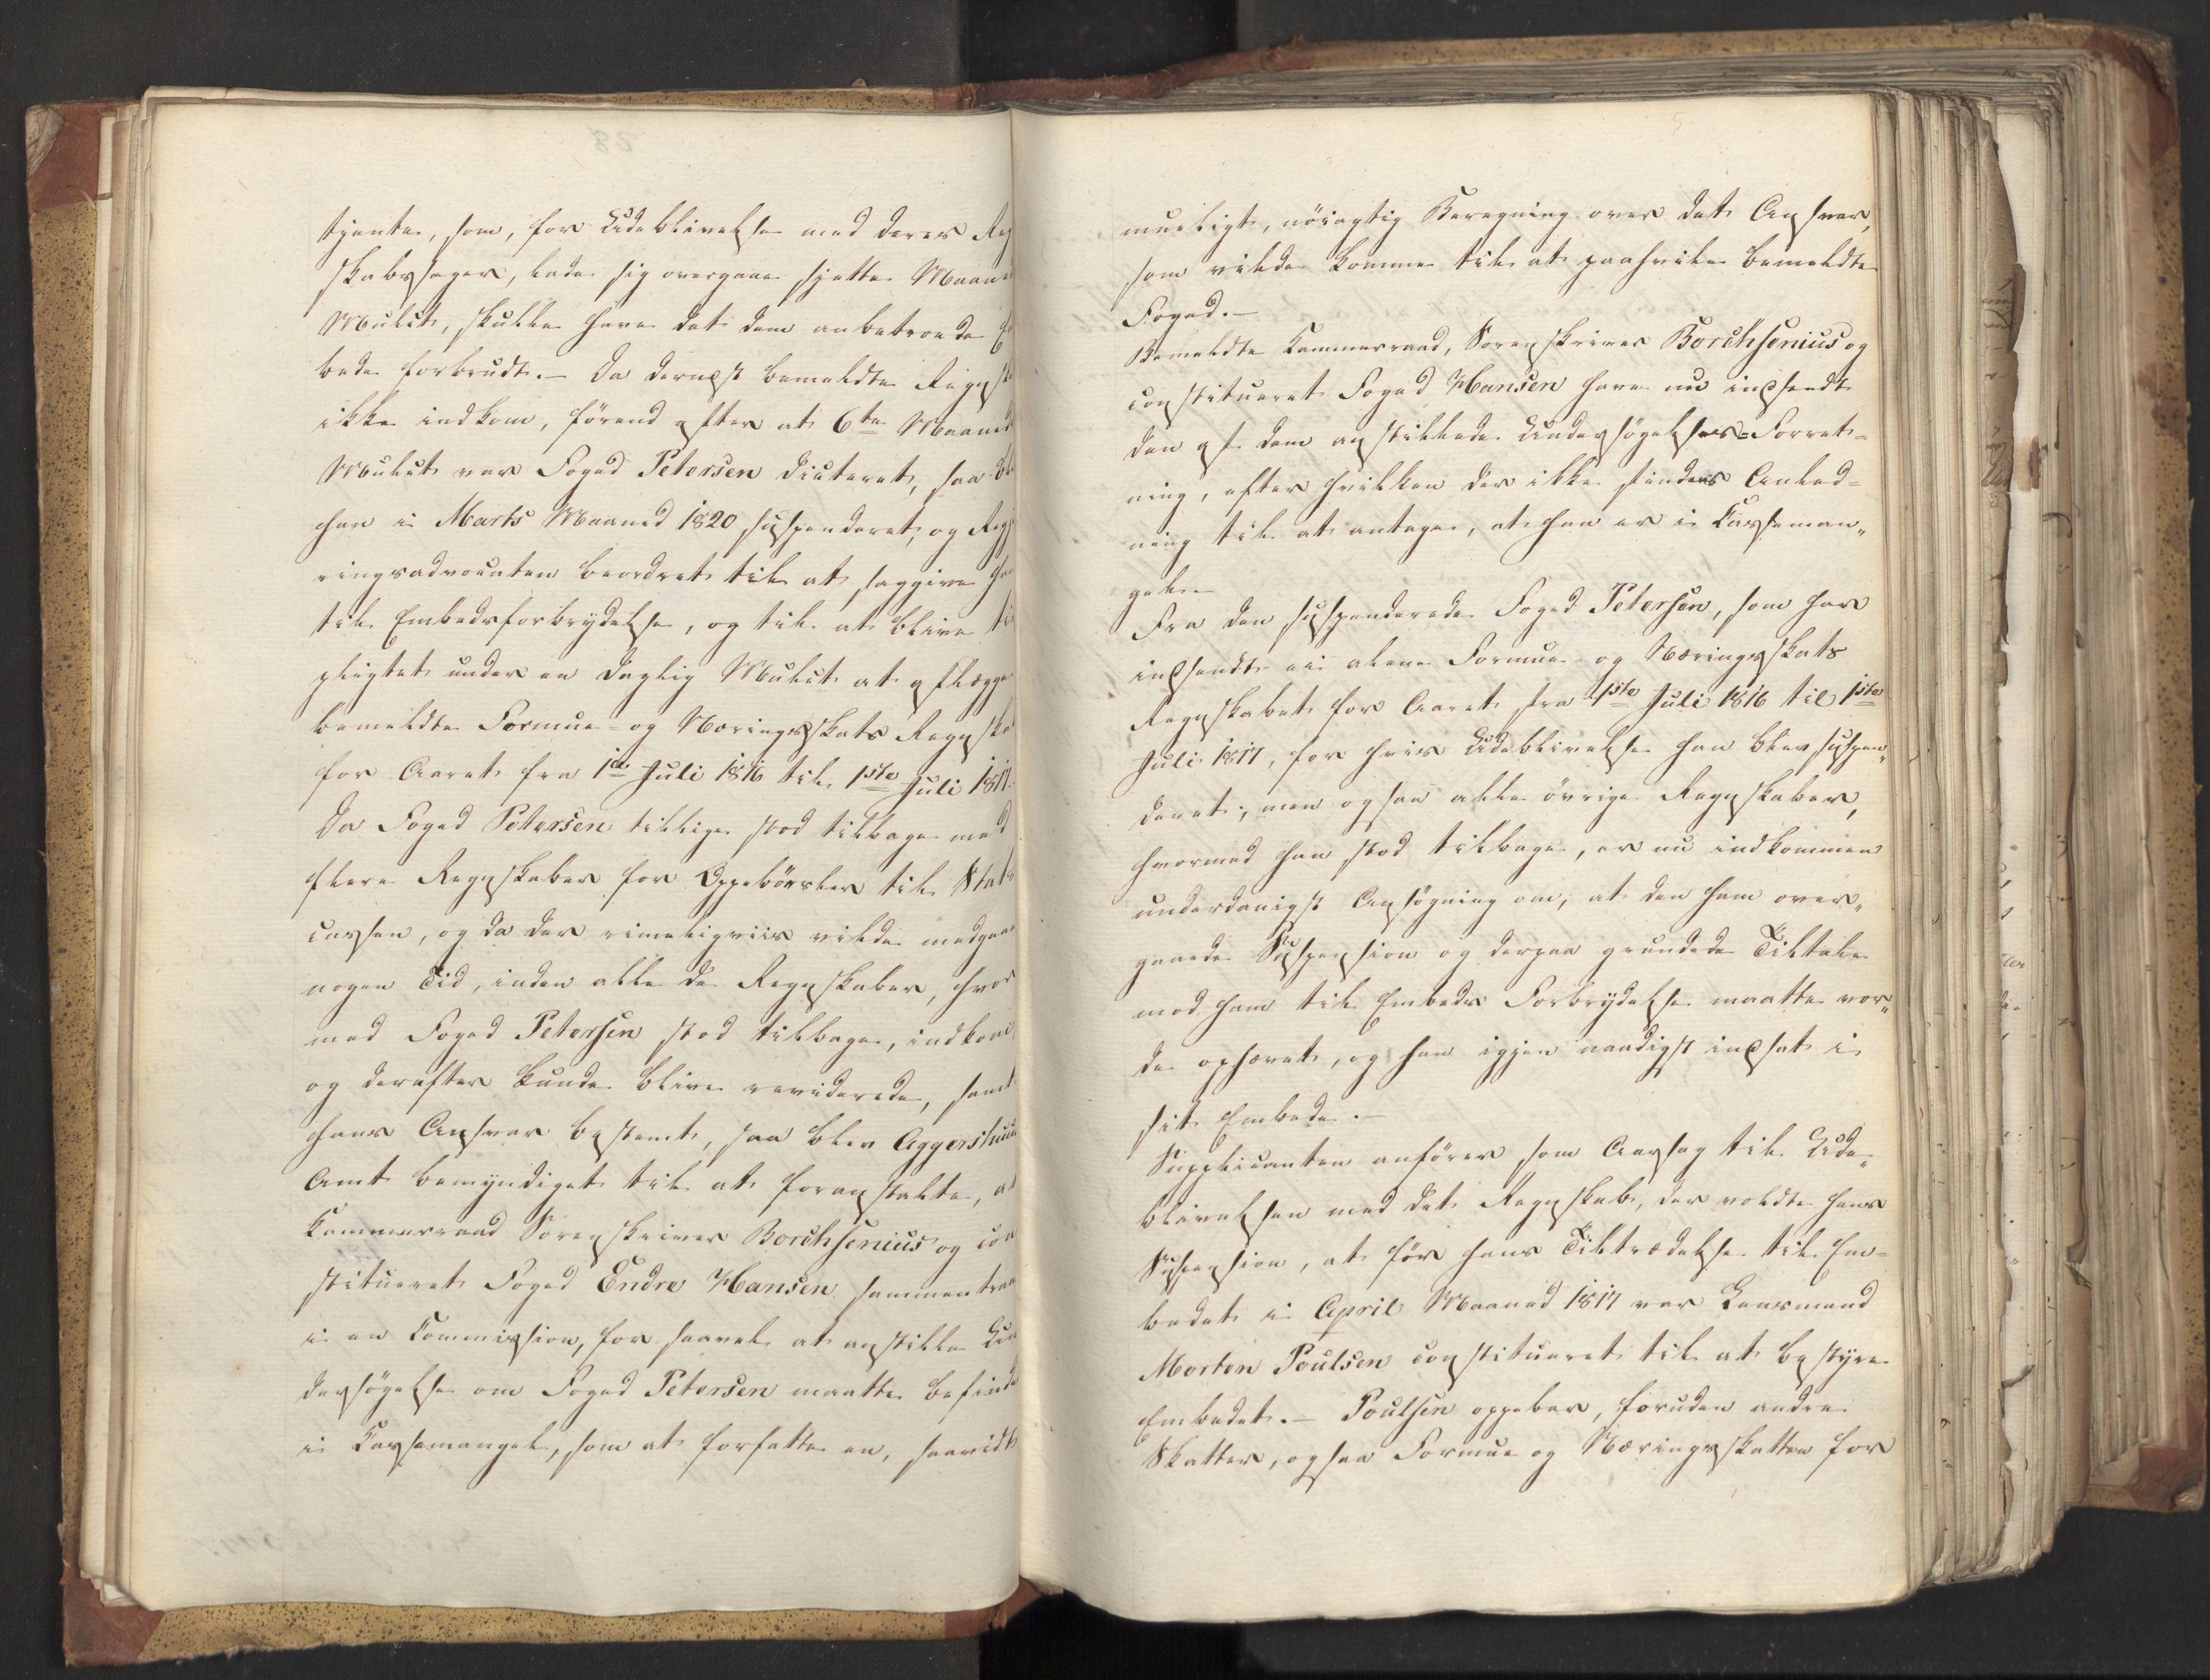 tjente, som, for Udeblivelse med deres Reg
skabssager, lade sig overgaae sjette Maaned
Mulct, skulle have det dem anbetroede E
bede forbrudt. — Da dernæst bemeldte Regnsk
ikke indkom, förend efter at 6te Maaned
Mulct var Foged Petersen dicteret, saa bl
han i Marts Maaned 1820 suspenderet, og Regj
ringsadvocaten beordret til at saggive ham
til Embedsforbrydelse, og til at blive til
pligtet under en daglig Mulct at aflægge
bemeldte Formue- og Næringsskats Regnska
for Aaret fra 1ste Juli 1816 til 1ste Juli 1817.
Da Foged Petersen tillige stod tilbage med
flere Regnskaber for Oppebörsler til Stats
cassen, og da der rimeligviis vilde medgaae
nogen Tid, inden alle de Regnskaber, hvor
med Foged Petersen stod tilbage, indkom
og derefter kunde blive reviderede, samt
hans Ansvar bestemt, saa blev Aggershuus
Amt bemyndiget til at foranstalte, at
Kammerraad Sorenskriver Borchsenius og con
stitueret Foged Endre Hansen sammentraa
i en Commission, for saavel at anstille Un
dersögelse om Foged Petersen maatte befinde
i Cassemangel, som at forfatte en, saavidt
mueligt, nöiagtig Beregning over det Ansvar,
som vilde komme til at paahvile bemeldte
Foged. —
Bemeldte Kammerraad, Sorenskriver Borchsenius og
constitueret Foged Hansen have nu indsendt
den af dem anstillede Undersögelses-Forret-
ning, efter hvilken der ikke findes Anled-
ning til at antage, at han er i Casseman„
gel. —
Fra den suspenderede Foged Petersen, som har
indsendt ei alene Formue- og Næringsskats
Regnskabet for Aaret fra 1ste Juli 1816 til 1ste
Juli 1817, for hvis Udeblivelse han blev suspen„
deret; men ogsaa alle övrige Regnskaber,
hvormed han stod tilbage, er nu indkommen
underdanigst Ansögning om, at den ham over„
gaaede Suspension og derpaa grundede Tiltale
mod ham til Embeds Forbrydelse maatte vor„
de ophævet, og han igjen naadigst indsat i
sit Embede. —
Supplicanten anförer som Aarsag til Ude„
blivelsen med det Regnskab, der voldte hans
Suspension, at för hans Tiltrædelse til Em-
bedet i April Maaned 1817 var Lensmand
Morten Poulsen constitueret til at bestyre
Embedet. — Poulsen oppebar, foruden andre
Skatter, ogsaa Formue og Næringsskatten for